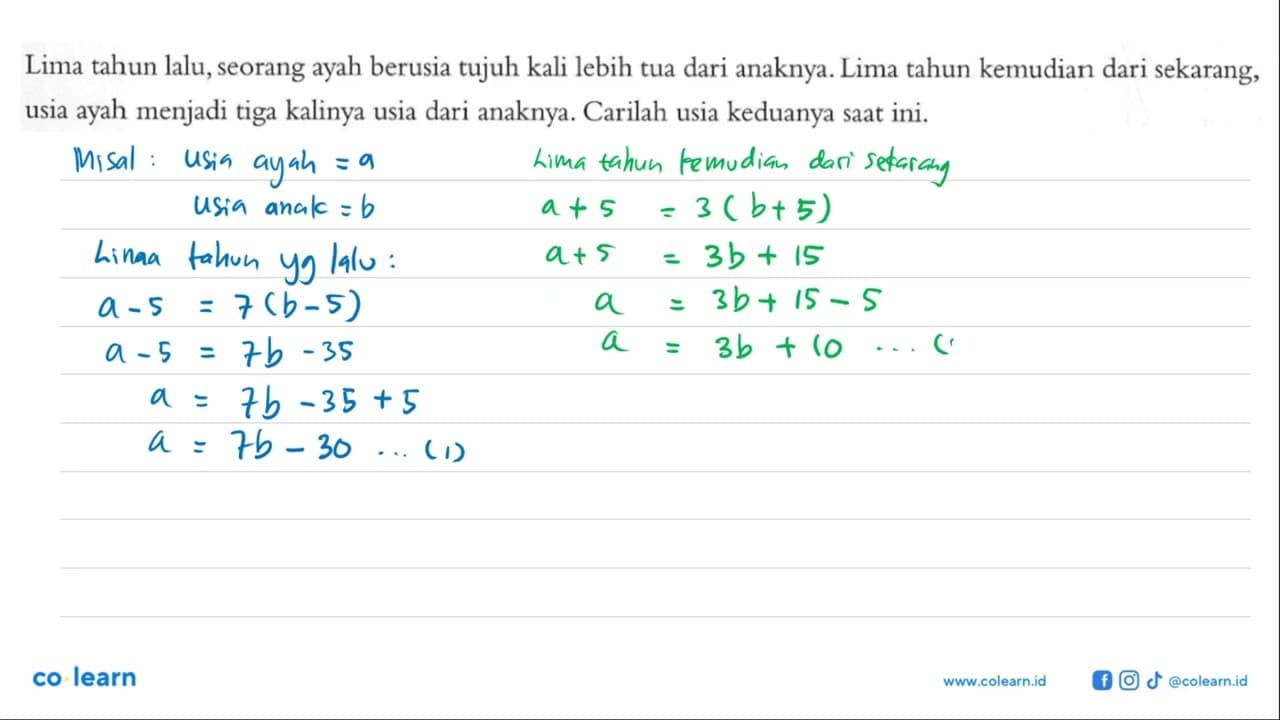 Lima tahun lalu, seorang ayah berusia tujuh kali lebih tua dari anaknya. Lima tahun kemudian dari sekarang,
usia ayah menjadi tiga kalinya usia dari anaknya. Carilah usia keduanya saat ini.
Misal : usia ayah = a
usia anak = b
Lima tahun yg lalu :
a - 5 = 7 (b - 5)
a - 5 = 7b - 35
a = 7b - 35 + 5
a = 7b - 30 ... (1)
Lima tahun kemudian dari sekarang
a + 5 = 3 ( b + 5 )
a + 5 = 3b + 15
a = 3b + 15 - 5
a = 3b + 10 ... (
co learn
www.colearn.id
@colearn.id